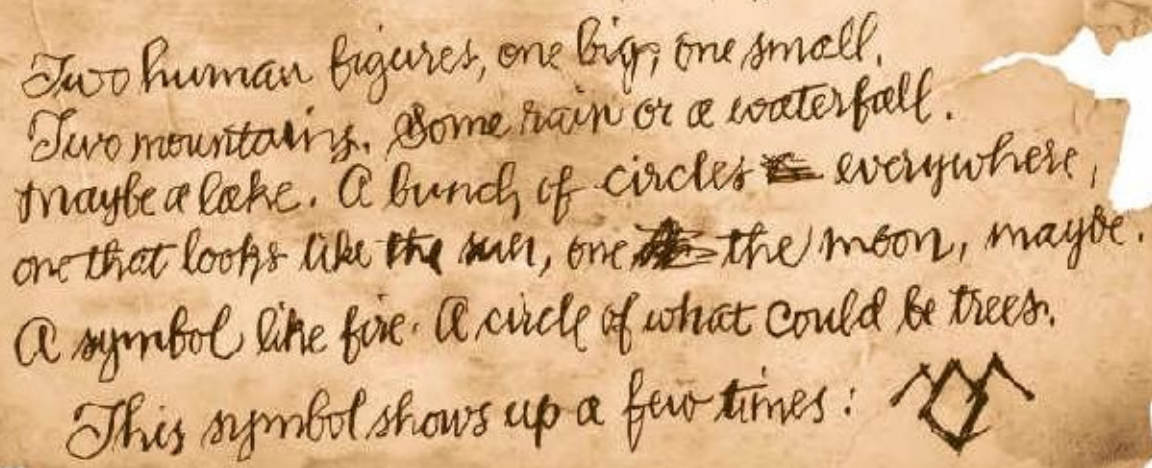 Two human figures, one big, one small.
Two mountains. Some rain or a waterfall.
Maybe a lake. A bunch of circles everywhere,
one that looks like the sun, one the moon, maybe.
A symbol like fire. A circle of what could be trees.
This symbol shows up a few times: